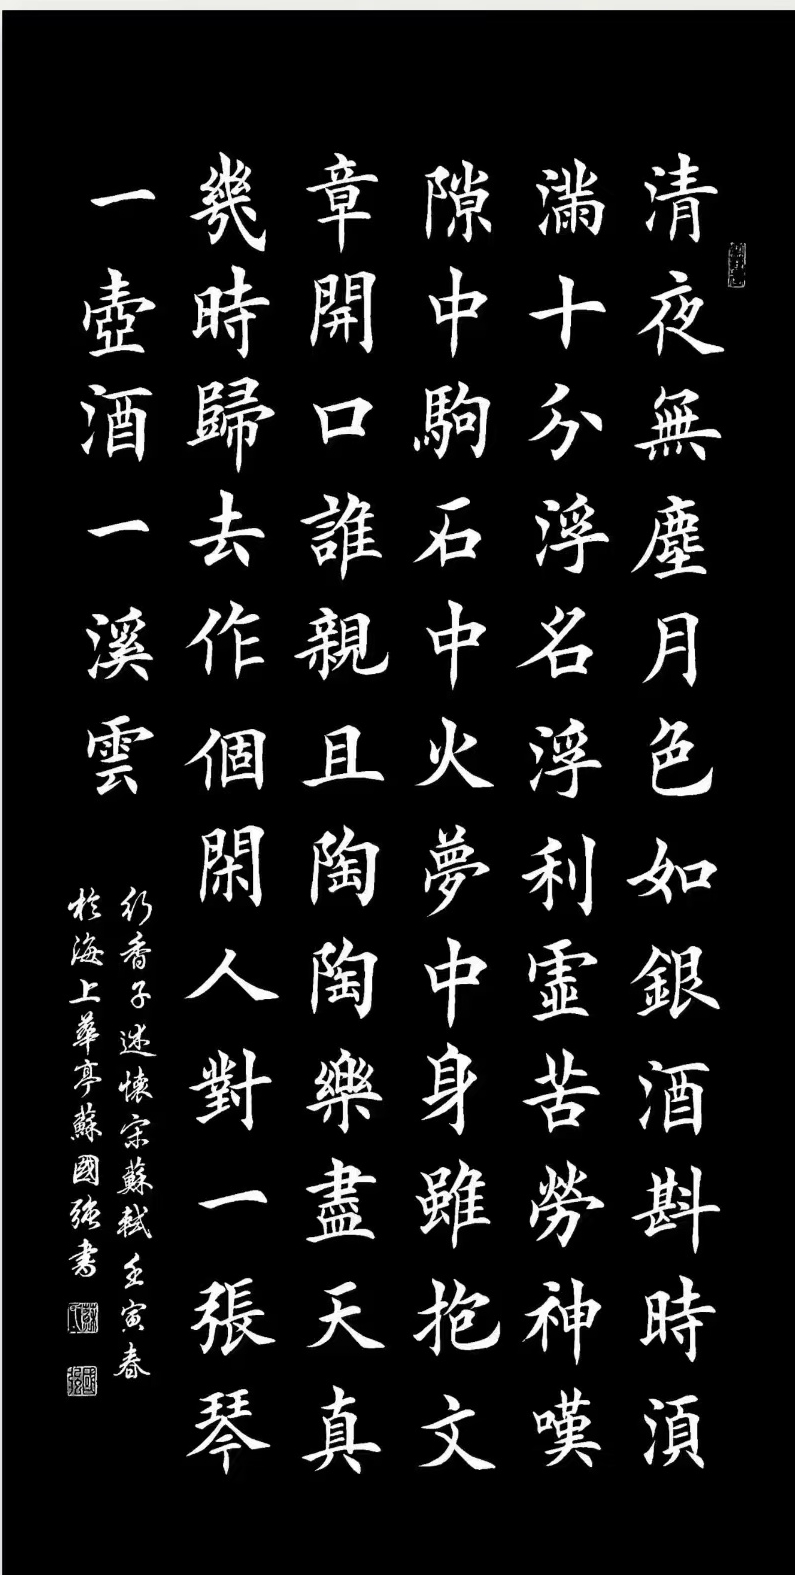 清夜無塵月色如銀酒斟時湏
滿十分浮名浮利虛苦勞神嘆
隙中駒石中火夢中身雖抱文
章開口誰親且陶陶樂盡天真
幾時歸去作個閑人對一張琴
一壺酒一溪雲
行香子述懷宋蘇軾壬寅春
於海上華亭蘇國強书